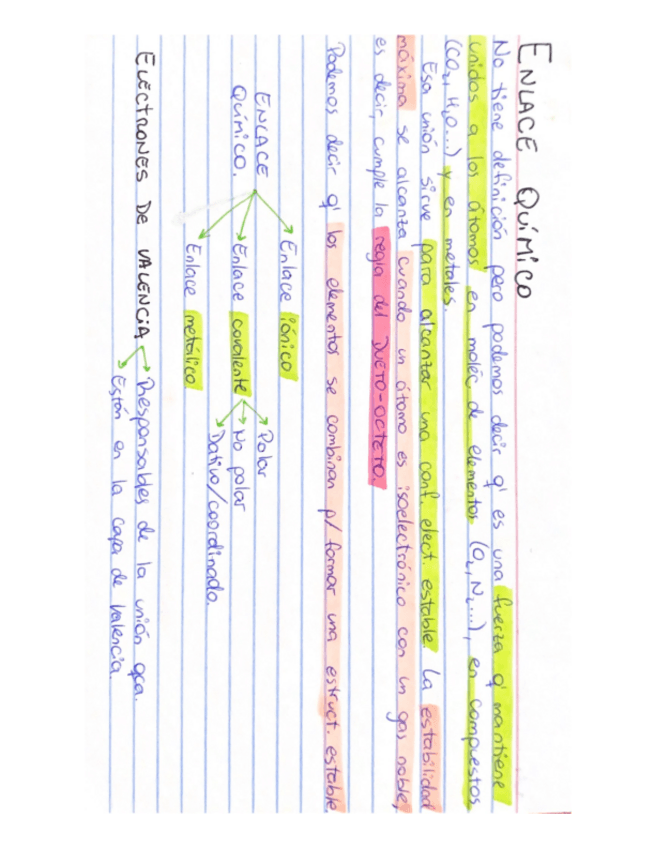 ENLACE QUÍMICO
No tiene definición pero podemos decir q' es una fuerza q' mantiene
unidos a los átomos en moléc de elementos (O2, N2...), en compuestos
(CO2, H2O...) y en metales.
Esa unión sirve para alcanzar una conf. elect. estable. La estabilidad
máxima se alcanza cuando un átomo es isoelectrónico con un gas noble,
es decir, cumple la regla del DUETO-OCTETO.
Podemos decir q' los elementos se combinan p/ formar una estruct. estable
ENLACE QUÍMICO.
Enlace iónico
Enlace covalente
Polar
No polar
Dativo/coordinado.
Enlace metálico.
ELECTRONES DE VALENCIA
Responsables de la unión qca.
Están en la capa de valencia.